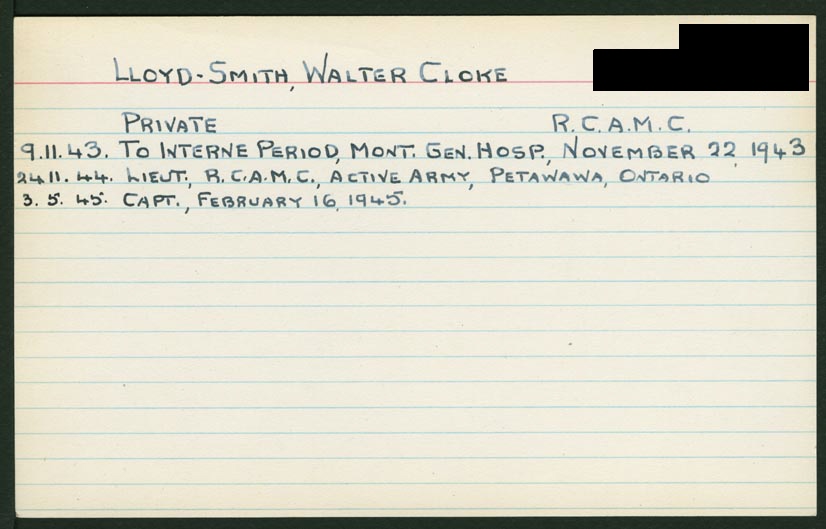 LLOYD-SMITH, WALTER CLOKE
PRIVATE R.C.A.M.C.
9.11.43. TO INTERNE PERIOD, MONT. GEN. HOSP., NOVEMBER 22, 1943
24.11.44. LIEUT., R.C.A.M.C., ACTIVE ARMY, PETAWAWA, ONTARIO
3.5.45. CAPT., FEBRUARY 16, 1945.